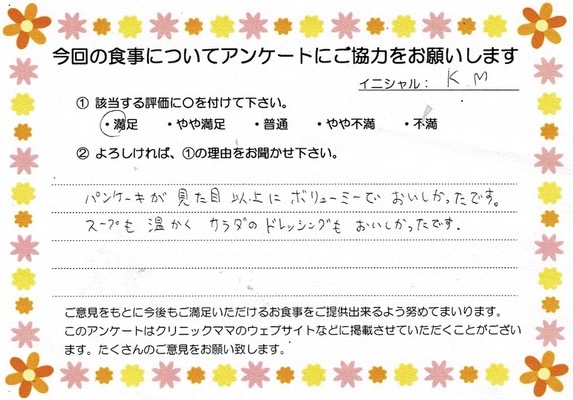 今回の食事についてアンケートにご協力をお願いします
イニシャル： K.M
① 該当する評価に○を付けて下さい。
・満足 ・やや満足 ・普通 ・やや不満 ・不満
② よろしければ、①の理由をお聞かせ下さい。
パンケーキが 見た目 以上に ボリューミーで おいしかったです。
スープも 温かく サラダの ドレッシングも おいしかったです.
ご意見をもとに今後もご満足いただけるお食事をご提供出来るよう努めてまいります。
このアンケートはクリニックママのウェブサイトなどに掲載させていただくことがござい
ます。たくさんのご意見をお願い致します。